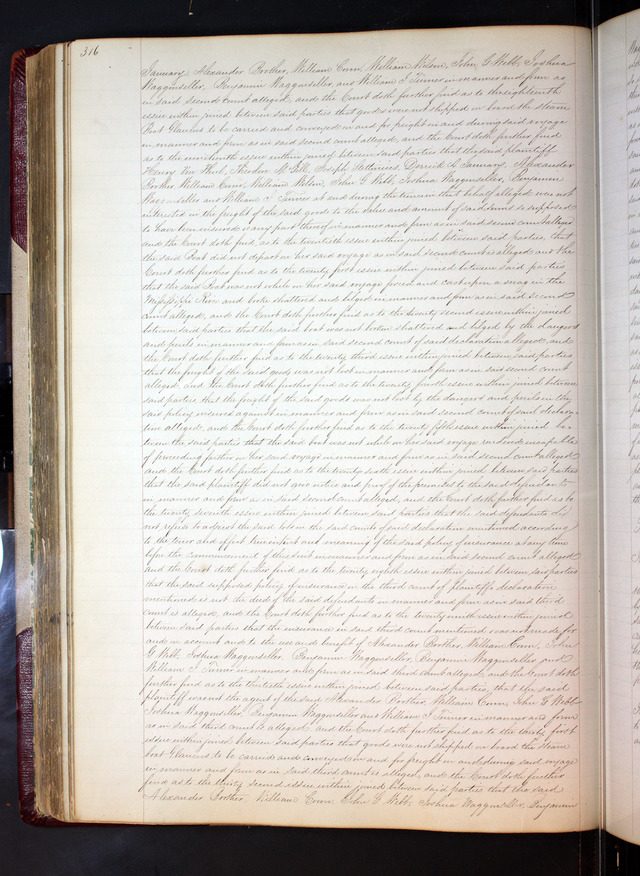 316
January, Alexander Brother, William Conn, William Wilson, John G Webb, Joshua
Waggonseller, Benjamin Waggonseller, and William I Turner in manner and form as
in said second count alleged, and the Court doth further find as to the eighteenth
issue within joined between said parties that goods were not shipped on board the steam
Boat Glaucus to be carried and conveyed in and for freight on and during said voyage
in manner and form as in said second count alleged, and the Court doth further find
as to the nineteenth issue within joined between said parties that the said plaintiff
Henry Von Phul, McGill, Joseph Derrick A January, Alexander
Brother, William Conn, William Wilson, John G Webb, Joshua Waggonseller, Benjamin
Waggonseller and William I Turner at and during the time in that behalf alleged were not
interested in the freight of the said goods to the value and amount of said sums so supposed
to have been insured or any part thereof in manner and form as in said second count alleged
and the Court doth find, as to the twentieth issue within joined between said parties, that
the said Boat did not depart on her said voyage as in said second count is alleged and the
Court doth further find as to the twenty first issue within joined between said parties
that the said Boat was not while on her said voyage forced and cast upon a snag in the
Mississippi River and broke shattered and bilged in manner and form as in said second
count alleged, and the Court doth further find as to the twenty second issue within joined
between said parties that the said boat was not broken shattered and bilged by the dangers
and perils in manner and form as in said second count of said declaration alleged, and
the Court doth further find as to the twenty third issue within joined between said parties
that the freight of the said goods was not lost in manner and form as in said second count
alleged, and the Court doth further find as to the twenty fourth issue within joined between
said parties, that the freight of the said goods was not lost by the dangers and perils in the
said policy insured against in manner and form as in said second count of said declara-
tion alleged, and the Court doth further find as to the twenty fifth issue within joined be-
tween the said parties that the said boat was not while on her said voyage rendered incapable
of proceeding further on her said voyage in manner and form as in said second count alleged
and the Court doth further find as to the twenty sixth issue within joined between said parties
that the said plaintiff did not give notice and proof of the premises to the said defendants
in manner and form as in said second count alleged, and the Court doth further find as to
the twenty seventh issue within joined between said parties that the said defendants did
not refuse to adjust the said loss in the said count of said declaration mentioned according
to the tenor and effect true intent and meaning of the said policy of insurance at any time
before the commencement of this suit in manner and form as in said second count alleged
and the Court doth further find as to the twenty eighth issue within joined between said parties
that the said supposed policy of insurance in the third count of plaintiffs declaration
mentioned is not the deed of the said defendants in manner and form as in said third
count is alleged, and the Court doth further find as to the twenty ninth issue within joined
between said parties that the insurance in said third count mentioned was not made for
and on account and to the use and benefit of Alexander Brother, William Conn, John
G Webb, Joshua Waggonseller, Benjamin Waggonseller, Benjamin Waggonseller and
William I Turner in manner and form as in said third count alleged, and the Court doth
further find as to the thirtieth issue within joined between said parties, that the said
plaintiff was not the agent of the said Alexander Brother, William Conn, John G Webb
Joshua Waggonseller, Benjamin Waggonseller and William I Turner in manner and form
as in said third count is alleged, and the Court doth further find as to the thirty first
issue within joined between said parties that goods were not shipped on board the steam
boat Glaucus to be carried and conveyed in and for freight on and during said voyage
in manner and form as in said third count is alleged, and the Court doth further
find as to the thirty second issue within joined between said parties that the said
Alexander Brother, William Conn, John G Webb, Joshua Waggonseller, Benjamin